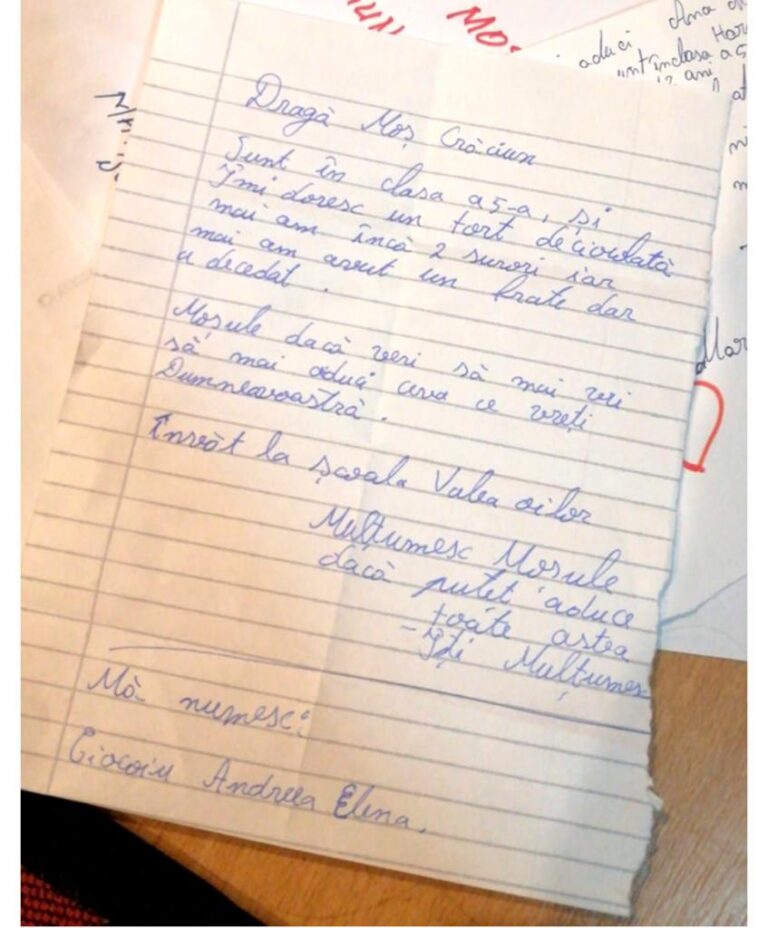 Dragă Moș Crăciun
Sunt în clasa a 5-a, și
Îmi doresc un tort de ciocolată
mai am încă 2 surori iar
mai am avut un frate dar
a decedat.
Moșule dacă vrei să mai vii
să mai aduci ceva ce vreți
Dumneavoastră.
Învăt la școala Valea oilor
Mulțumesc Mosule
dacă putet aduce
toate astea
-Îți Mulțumes
Mă numesc:
Ciocoiu Andreea Elena.
aduci Ana
sunt în clasa
12 ani
a 5
Mar